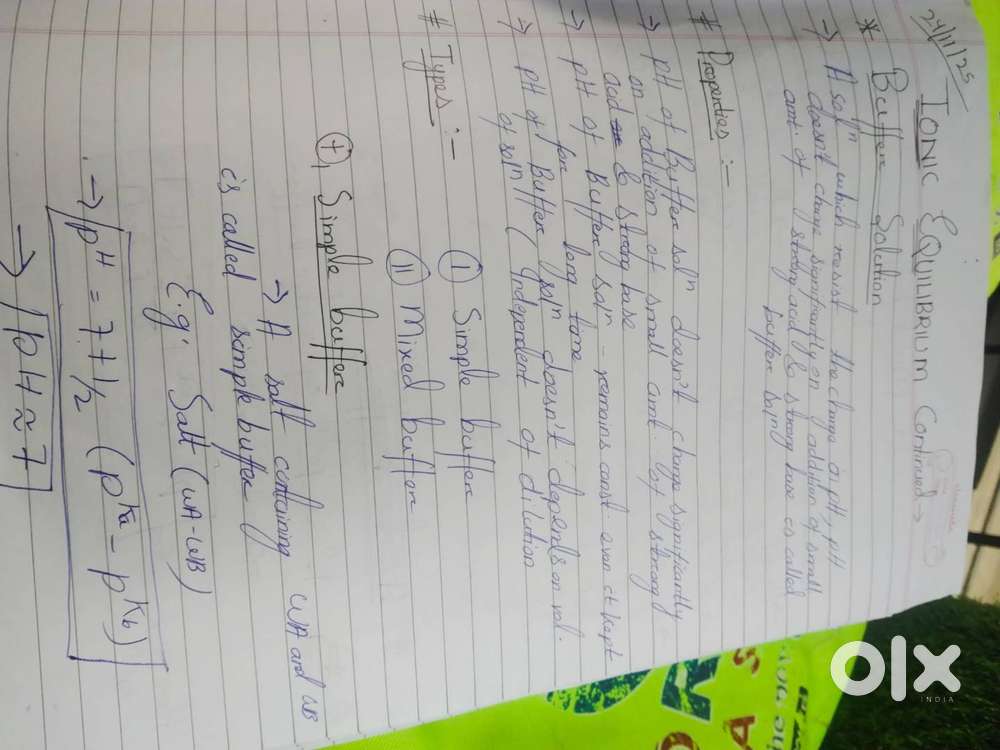 24/11/25
IONIC EQUILIBRIUM Continued →
* Buffer Solution
→ A solⁿ which resist the change in pH, pH
doesn't change significantly on addition of small
amt. of strong acid & strong base is called
buffer solⁿ
# Properties :-
→ pH of Buffer solⁿ doesn't change significantly
on addition of small amt. by strong
acid & strong base
→ pH of Buffer solⁿ - remains const. even it kept
for long time
→ pH of Buffer solⁿ doesn't depends on vol.
of solⁿ (Independent of dilution
# Types :-
① Simple buffer
② Mixed buffer
①, Simple buffer
→ A salt containing WA and WB
is called simple buffer
E.g. Salt (WA-WB)
→ pH = 7 + 1/2 (pKa - pKb)
→ pH ≈ 7
olx
INDIA